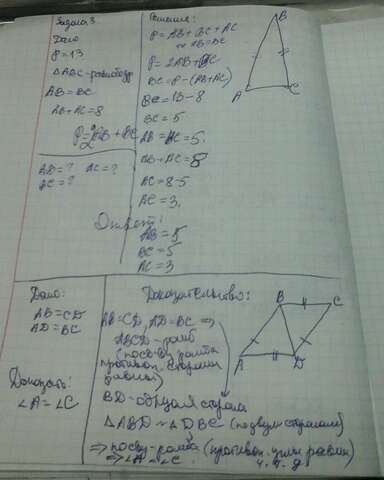 Задача 3.
Дано
P=13
△ABC-равнобедр
AB=BC
AB+AC=8
AB=? AC=?
Решение:
P=AB+BC+AC
AB=BC
BC=P-(AB+AC)
BC=13-8
BC=5
AB=BC=5.
AB+AC=8
AC=8-5
AC=3.
B
A
C
Ответ:
AB=5
BC=5
AC=3
Дано:
AB=CD
AD=BC
Доказать:
∠A=∠C
Доказательство:
AB=CD, AD=BC ⇒
ABCD-ромб
(по св-ву ромба
противоп. стороны
равны)
BD-общая сторона
△ABD = △DBC (по двум сторонам)
⇒ по св-ву ромба (противоп. углы равны)
⇒ ∠A=∠C. ч.т.д
B
C
A
D